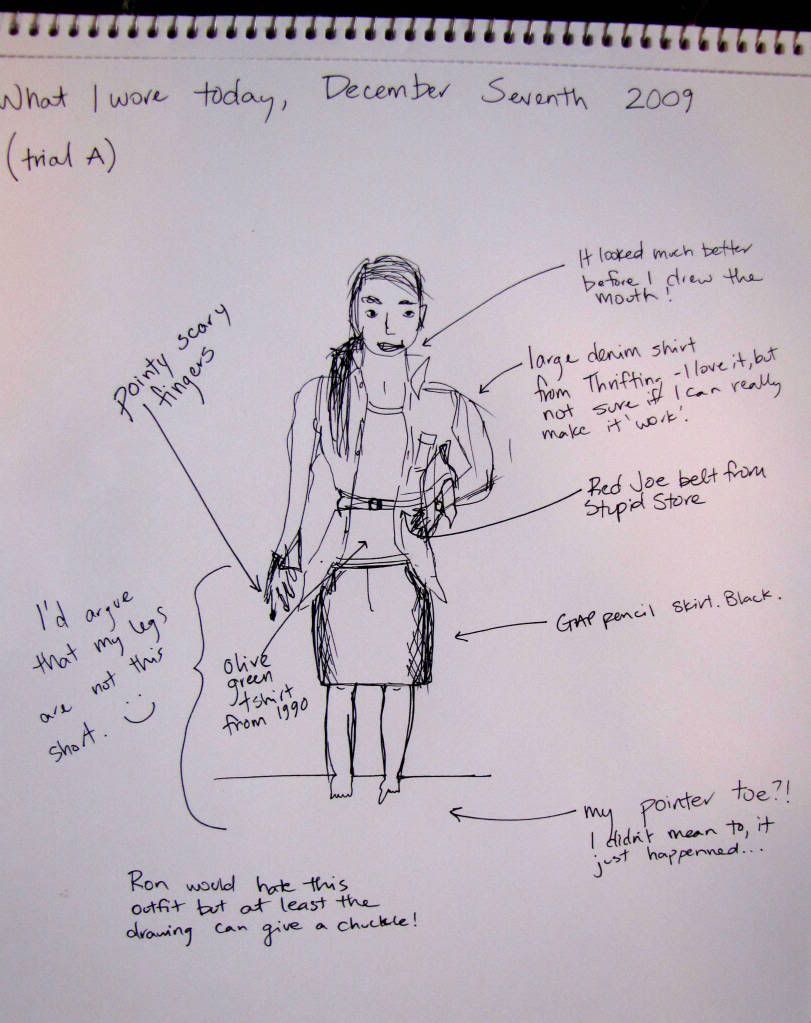 What I wore today, December Seventh 2009
(trial A)
It looked much better
before I drew the
mouth!
Pointy scary
fingers
large denim shirt
from Thrifting - I love it, but
not sure if I can really
make it 'work'.
Red Joe belt from
Stupid Store
I'd argue
that my legs
are not this
short.
GAP pencil skirt. Black.
olive
green
tshirt
from 1990
my pointer toe?!
I didn't mean to, it
just happenned...
Ron would hate this
outfit but at least the
drawing can give a chuckle!